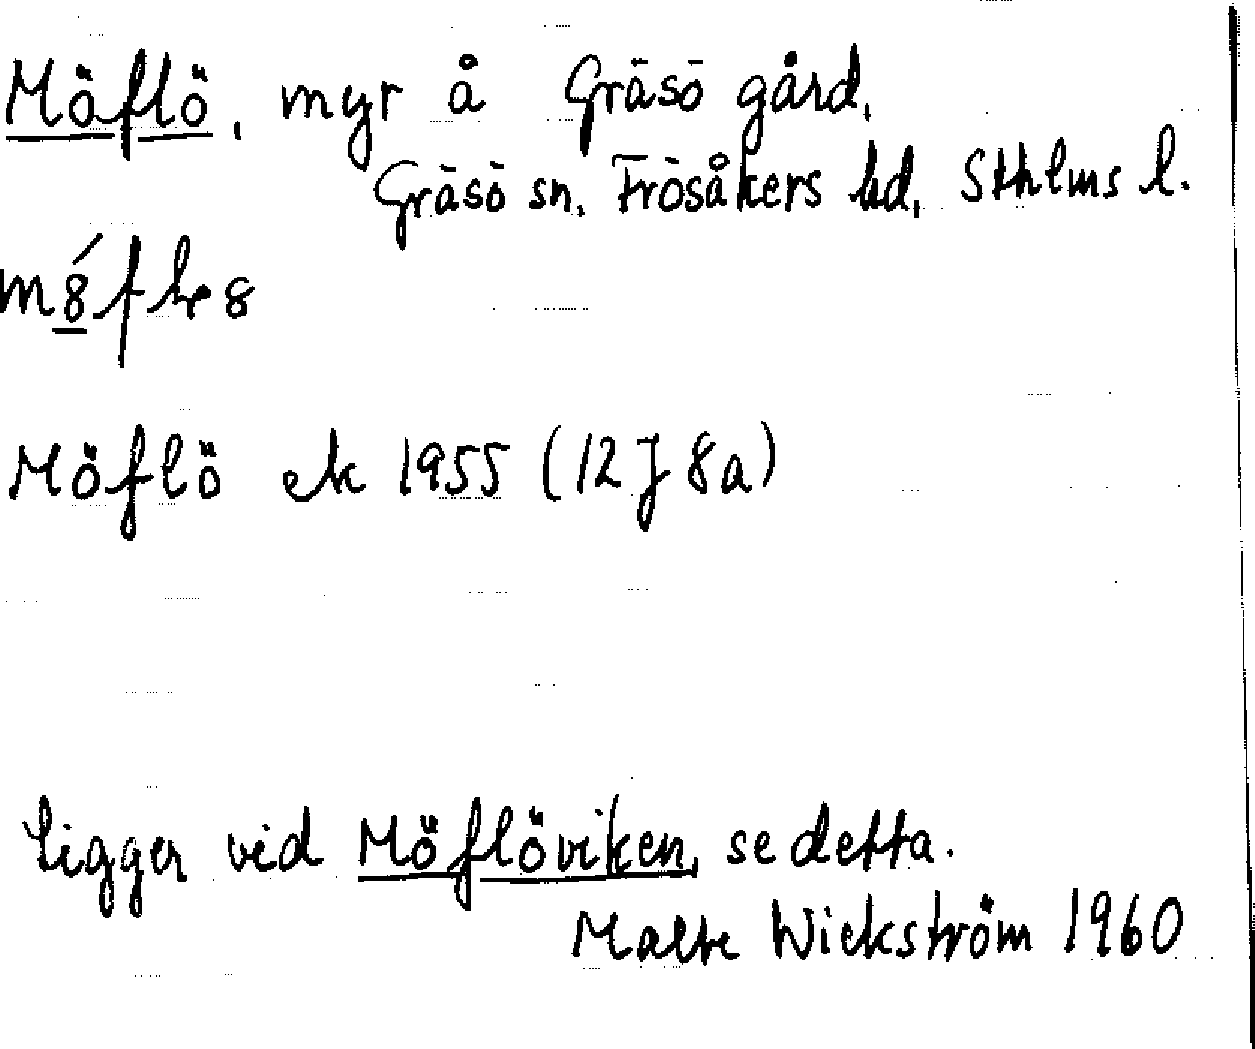 Möflö, myr å Gräsö gård,
Gräsö sn, Frösåkers hd, Sthlms l.
Möflö ek 1955 (12J 8a)
Ligger vid Möflöviken, se detta.
Malte Wickström 1960